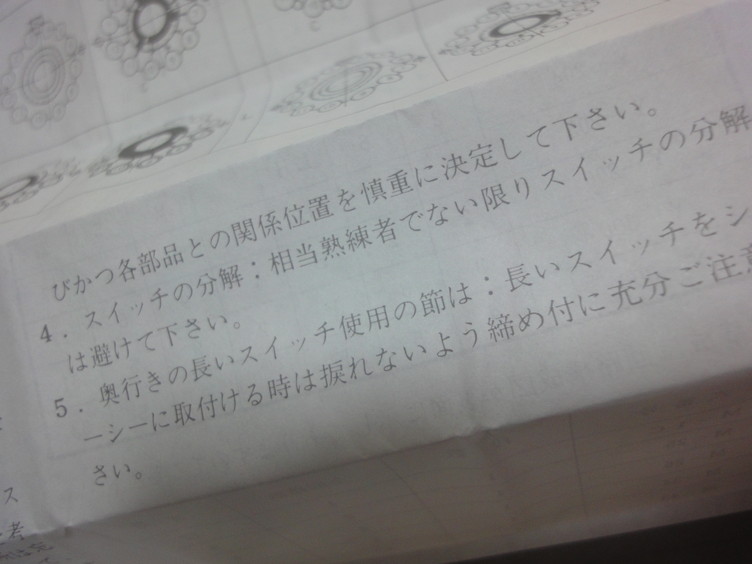 びかつ各部品との関係位置を慎重に決定して下さい。
4．スイッチの分解：相当熟練者でない限りスイッチの分解
は避けて下さい。
5．奥行きの長いスイッチ使用の節は：長いスイッチをシ
ーシーに取付ける時は捩れないよう締め付に充分ご注意
さい。
ス
考